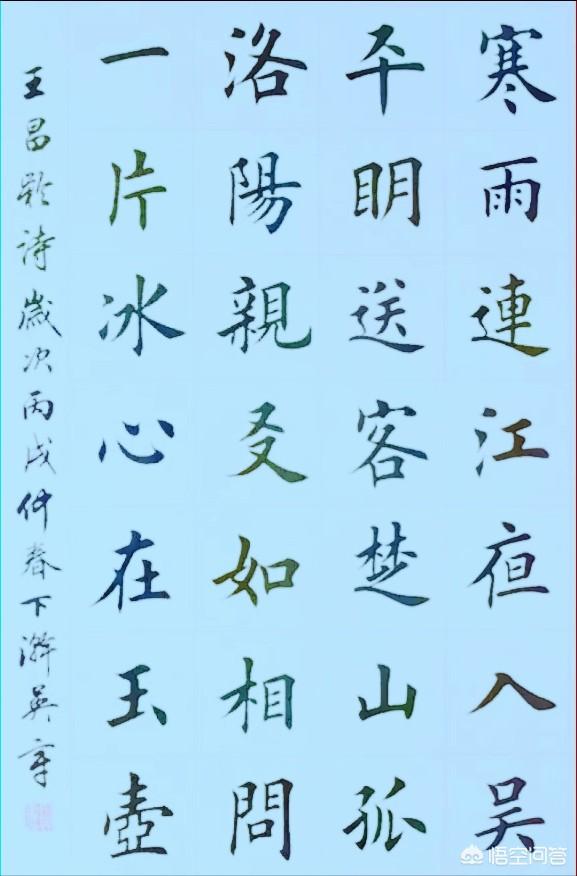 寒雨連江夜入吴
平明送客楚山孤
洛陽親友如相問
一片冰心在玉壺
王昌齡诗歲次丙戌仲春下澣英章
悟空问答